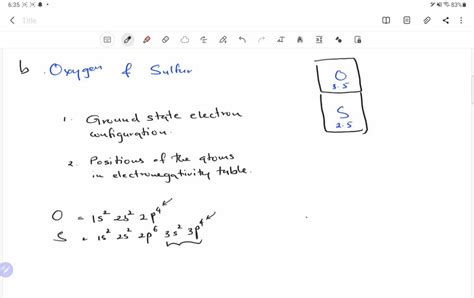 6:35
83%
Title
b. Oxygen & Sulfur
O
3.5
S
2.5
1. Ground state electron
configuration.
2. Positions of the atoms
in electronegativity table.
O = 1s² 2s² 2p⁴
S = 1s² 2s² 2p⁶ 3s² 3p⁴